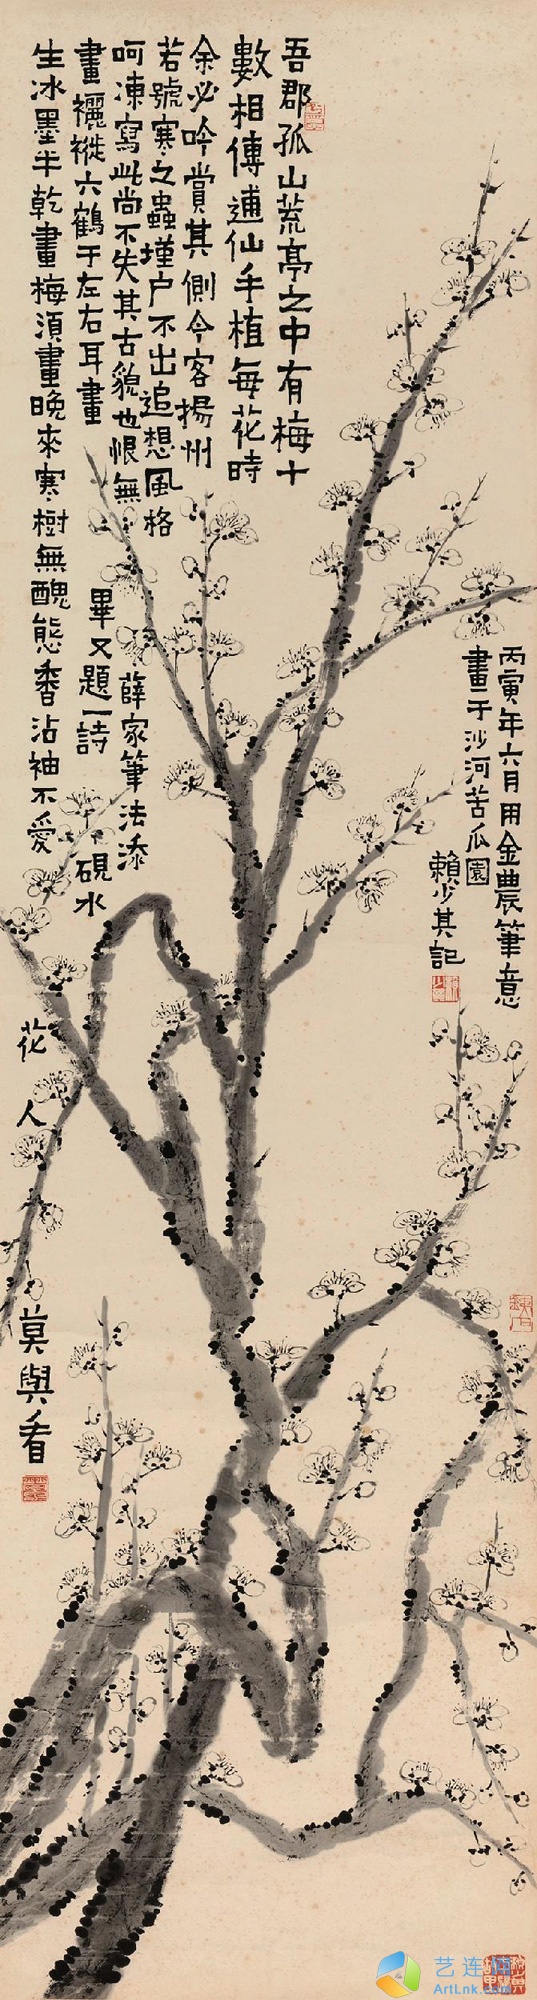 吾郡孤山荒亭之中有梅十
數相傳逋仙手植每花時
余必吟賞其側今客揚州
若號寒之蟲墐户不出追想風格
呵凍寫此尚不失其古貌也恨無
薛家筆法添
畫褵褷六鶴于左右耳畫
畢又題一詩
硯水
生冰墨半乾畫梅須畫晚來寒樹無醜態香沾袖不愛
花人莫與看
丙寅年六月用金農筆意
畫于沙河苦瓜園
賴少其記
艺连
ArtLnk.Com